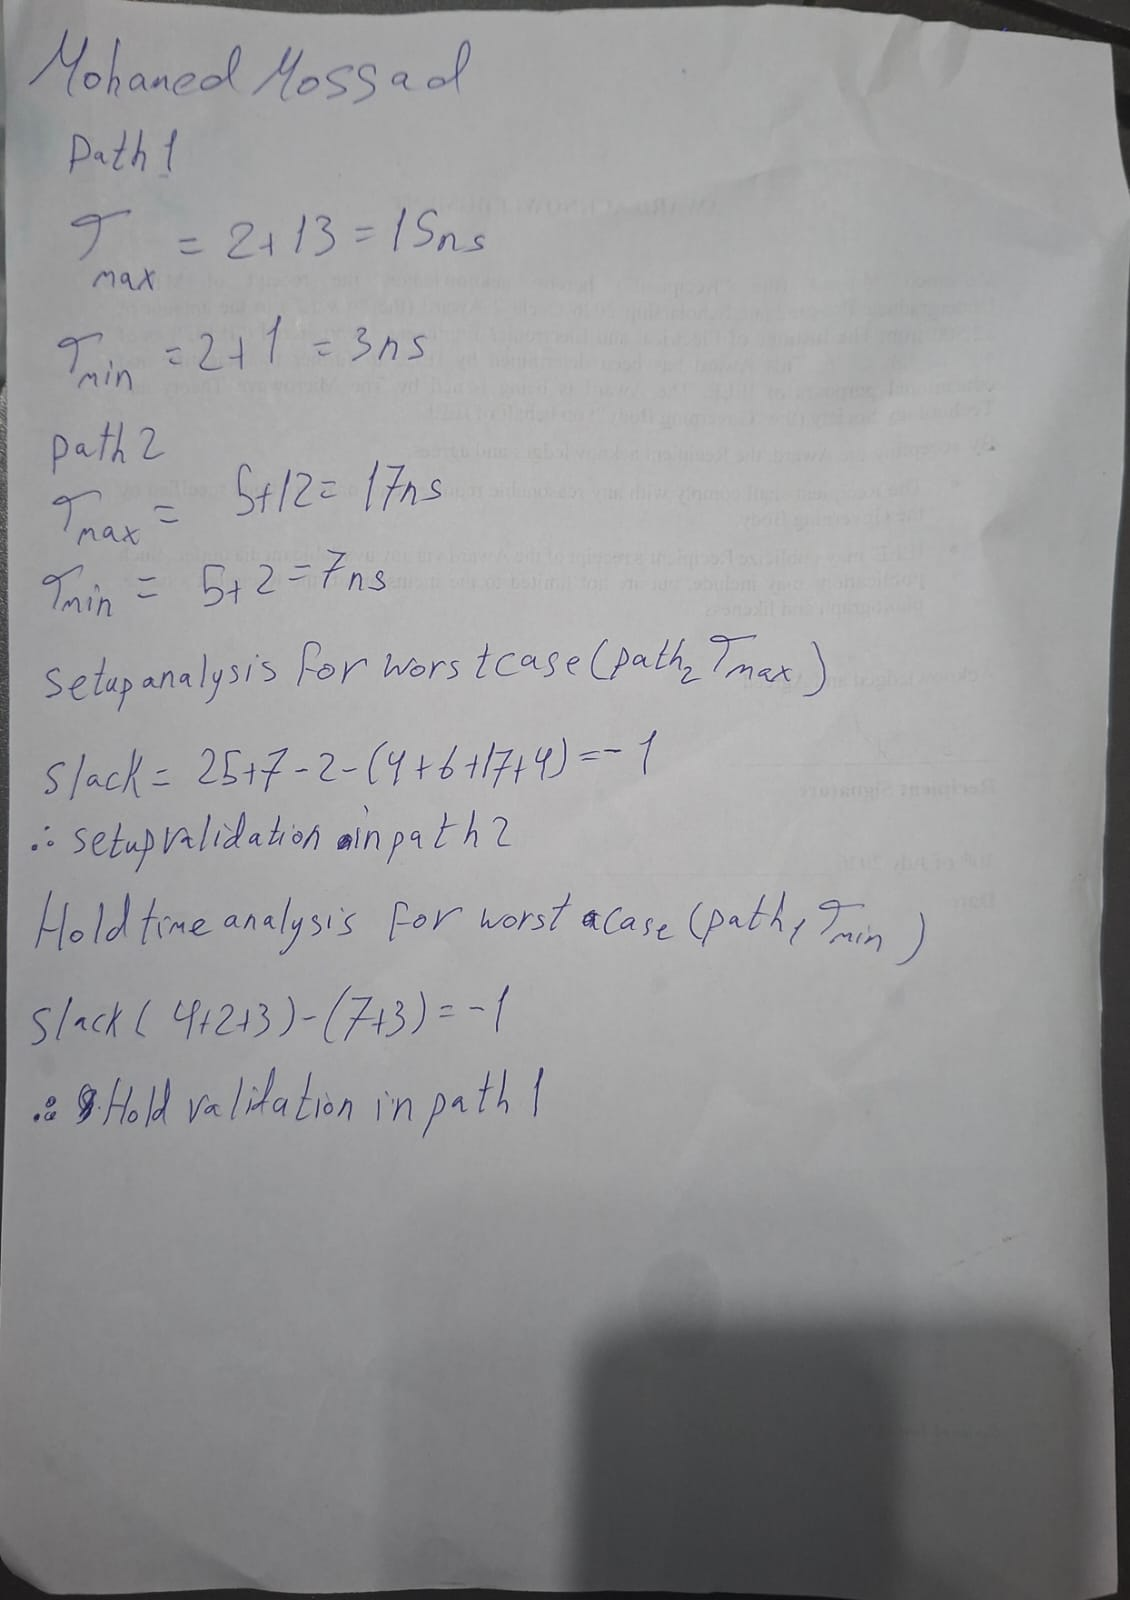 Mohamed Mossad
Path 1
T max = 2+13 = 15ns
T min = 2+1 = 3ns
path 2
T max = 5+12 = 17ns
T min = 5+2 = 7ns
setup analysis for worst case (path2 Tmax)
slack = 25+7-2-(4+6+17+4) = -1
∴ setup validation in path 2
Hold time analysis for worst case (path1 Tmin)
slack ( 4+2+3)-(7+3) = -1
∴ Hold validation in path 1